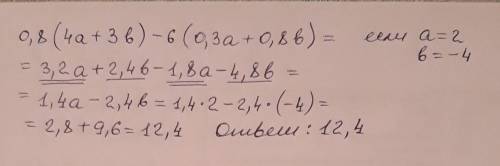 0,8(4a+3в)-6(0,3a+0,8в)= если a=2
в=-4
=3,2a+2,4в-1,8a-4,8в=
=1,4a-2,4в=1,4·2-2,4·(-4)=
=2,8+9,6=12,4 Ответ: 12,4